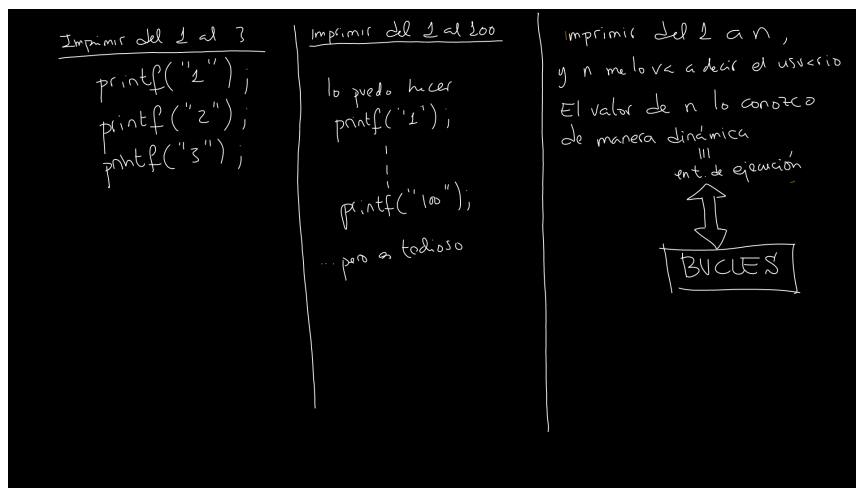 Imprimir del 1 al 3
printf("1");
printf("2");
printf("3");
imprimir del 1 al 100
lo puedo hacer
printf("1");
printf("100");
...pero es tedioso
imprimir del 1 a n,
y n me lo va a decir el usuario
El valor de n lo conozco
de manera dinámica
en t. de ejecución
BUCLES